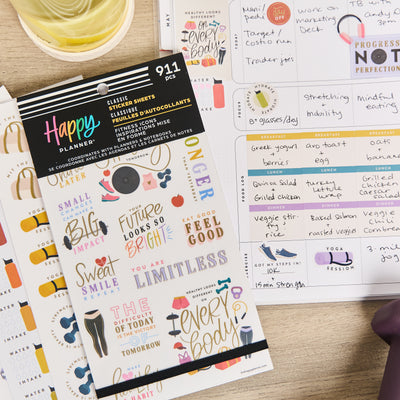 HEALTHY LOOKS
DIFFERENT
ON
EVERY
BODY
MAY
Mani/
pedi
DAY
OFF
work on
marketing
Deck
Target/
costco run
Trader Joe
PROGRESS
NOT
PERFECTION
911
pcs
CLASSIC
STICKER SHEETS
CLASSIQUE
FEUILLES D'AUTOCOLLANTS
FITNESS GOALS
INSPIRATIONS MISE
EN FORME
the
Happy
PLANNER®
COORDINATES WITH PLANNERS & NOTEBOOKS
SE COORDONNE AVEC LES AGENDAS ET LES CARNETS DE NOTES
glasses/day
Stretching
+
Mobility
Mindful
eating
BREAKFAST
BREAKFAST
BREAKFAST
Greek yogurt
+
berries
avo toast
+
egg
oats
+
banana
FOOD LOG
LUNCH
LUNCH
LUNCH
Quinoa Salad
Grilled
Chicken
turkey
lettuce
wrap
Chicken
Caesar
salad
DINNER
DINNER
DINNER
veggie stir
fry +
rice
Baked Salmon
+
roasted veggies
veggie
Chili +
Cornbread
GOT MY STEPS IN!
10K
15 min strength
YOGA
SESSION
TOMORROW
LATER
STRONGER
SMALL
CHANGES
MAKE A
BIG
IMPACT
THE
Future
LOOKS SO
BRIGHT
EAT GOOD
FEEL
GOOD
Sweat
SMILE
REPEAT
YOU ARE
LIMITLESS
THE
DIFFICULTY
OF TODAY
IS THE VICTORY
OF
TOMORROW
HEALTHY LOOKS
DIFFERENT
ON
EVERY
BODY
YOGA
SESSION
WATER
INTAKE
WATER
INTAKE